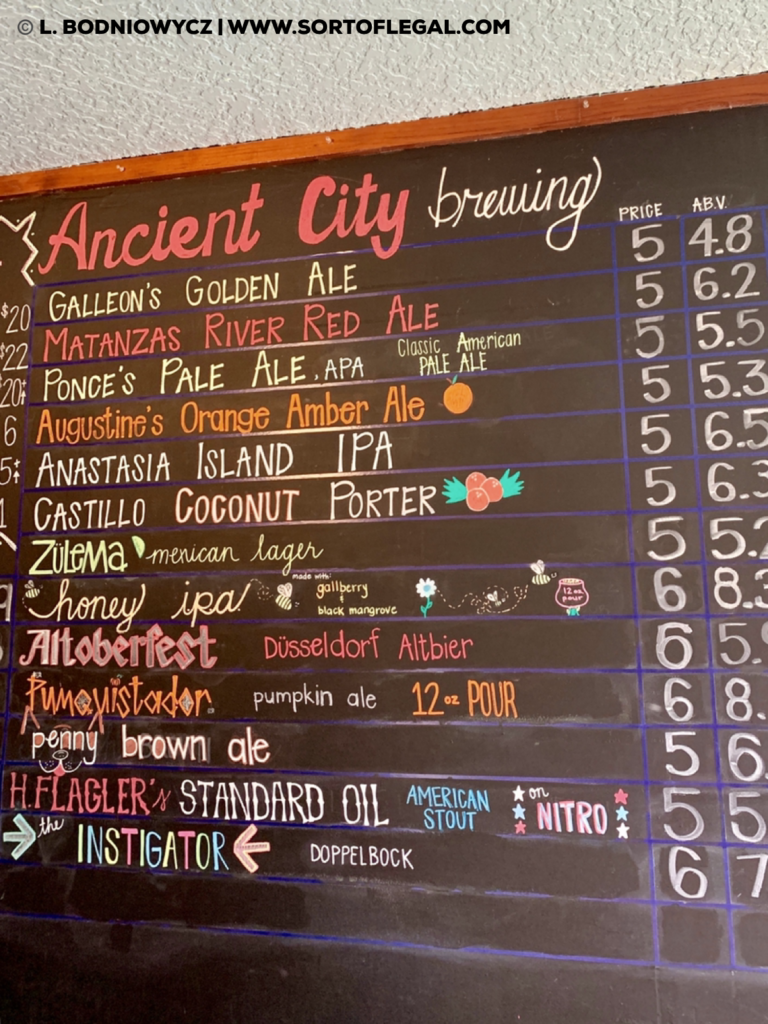 © L. BODNIOWYCZ | WWW.SORTOFLEGAL.COM
Ancient City brewing PRICE A.B.V.
GALLEON'S GOLDEN ALE 5 4.8
$20 MATANZAS RIVER RED ALE 5 6.2
$22 PONCE'S PALE ALE, APA Classic American PALE ALE 5 5.5
$20 Augustine's Orange Amber Ale 5 5.3
6 ANASTASIA ISLAND IPA 5 6.5
5 CASTILLO COCONUT PORTER 5 6.3
1 ZULEMA mexican lager 5 5.2
9 honey ipa! made with: gallberry + black mangrove 12oz pour 6 8.3
Altoberfest Düsseldorf Altbier 6 5.
Pumquistador pumpkin ale 12oz POUR 6 8.
penny brown ale 5 6.
H. FLAGLER'S STANDARD OIL AMERICAN STOUT on NITRO 5 5
the INSTIGATOR DOPPELBOCK 6 7